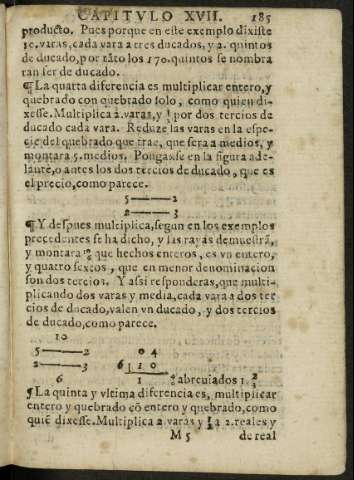 CAPITVLO XVII. 185
producto. Pues porque en este exemplo dixiste
50. varas, cada vara a tres ducados, y 2. quintos
de ducado, por tãto los 170. quintos se nombra
ran ser de ducado.
¶La quarta diferencia es multiplicar entero, y
quebrado con quebrado solo, como quien di-
xesse. Multiplica 2. varas, y ½ por dos tercios de
ducado cada vara. Reduze las varas en la espe-
cie del quebrado que trae, que sera a medios, y
montara 5. medios. Pongasse en la figura ade-
lante, o antes los dos tercios de ducado, que es
el precio, como parece.
5——2
2——3
¶Y despues multiplica, segun en los exemplos
precedentes se ha dicho, y las rayas demuestrã,
y montara que hechos enteros, es vn entero,
y quatro sextos, que en menor denominacion
son dos tercios. Y assi responderas, que multi-
plicando dos varas y media, cada vara a dos ter
cios de ducado, valen vn ducado, y dos tercios
de ducado, como parece.
10
5——2 04
2——3 6|10
6 1 4/6 abreuiados 1. 2/3
¶La quinta y vltima diferencia es, multiplicar
entero y quebrado cõ entero y quebrado, como
quiẽ dixesse. Multiplica 2 varas y ½ a 2. reales y
M 5 de real